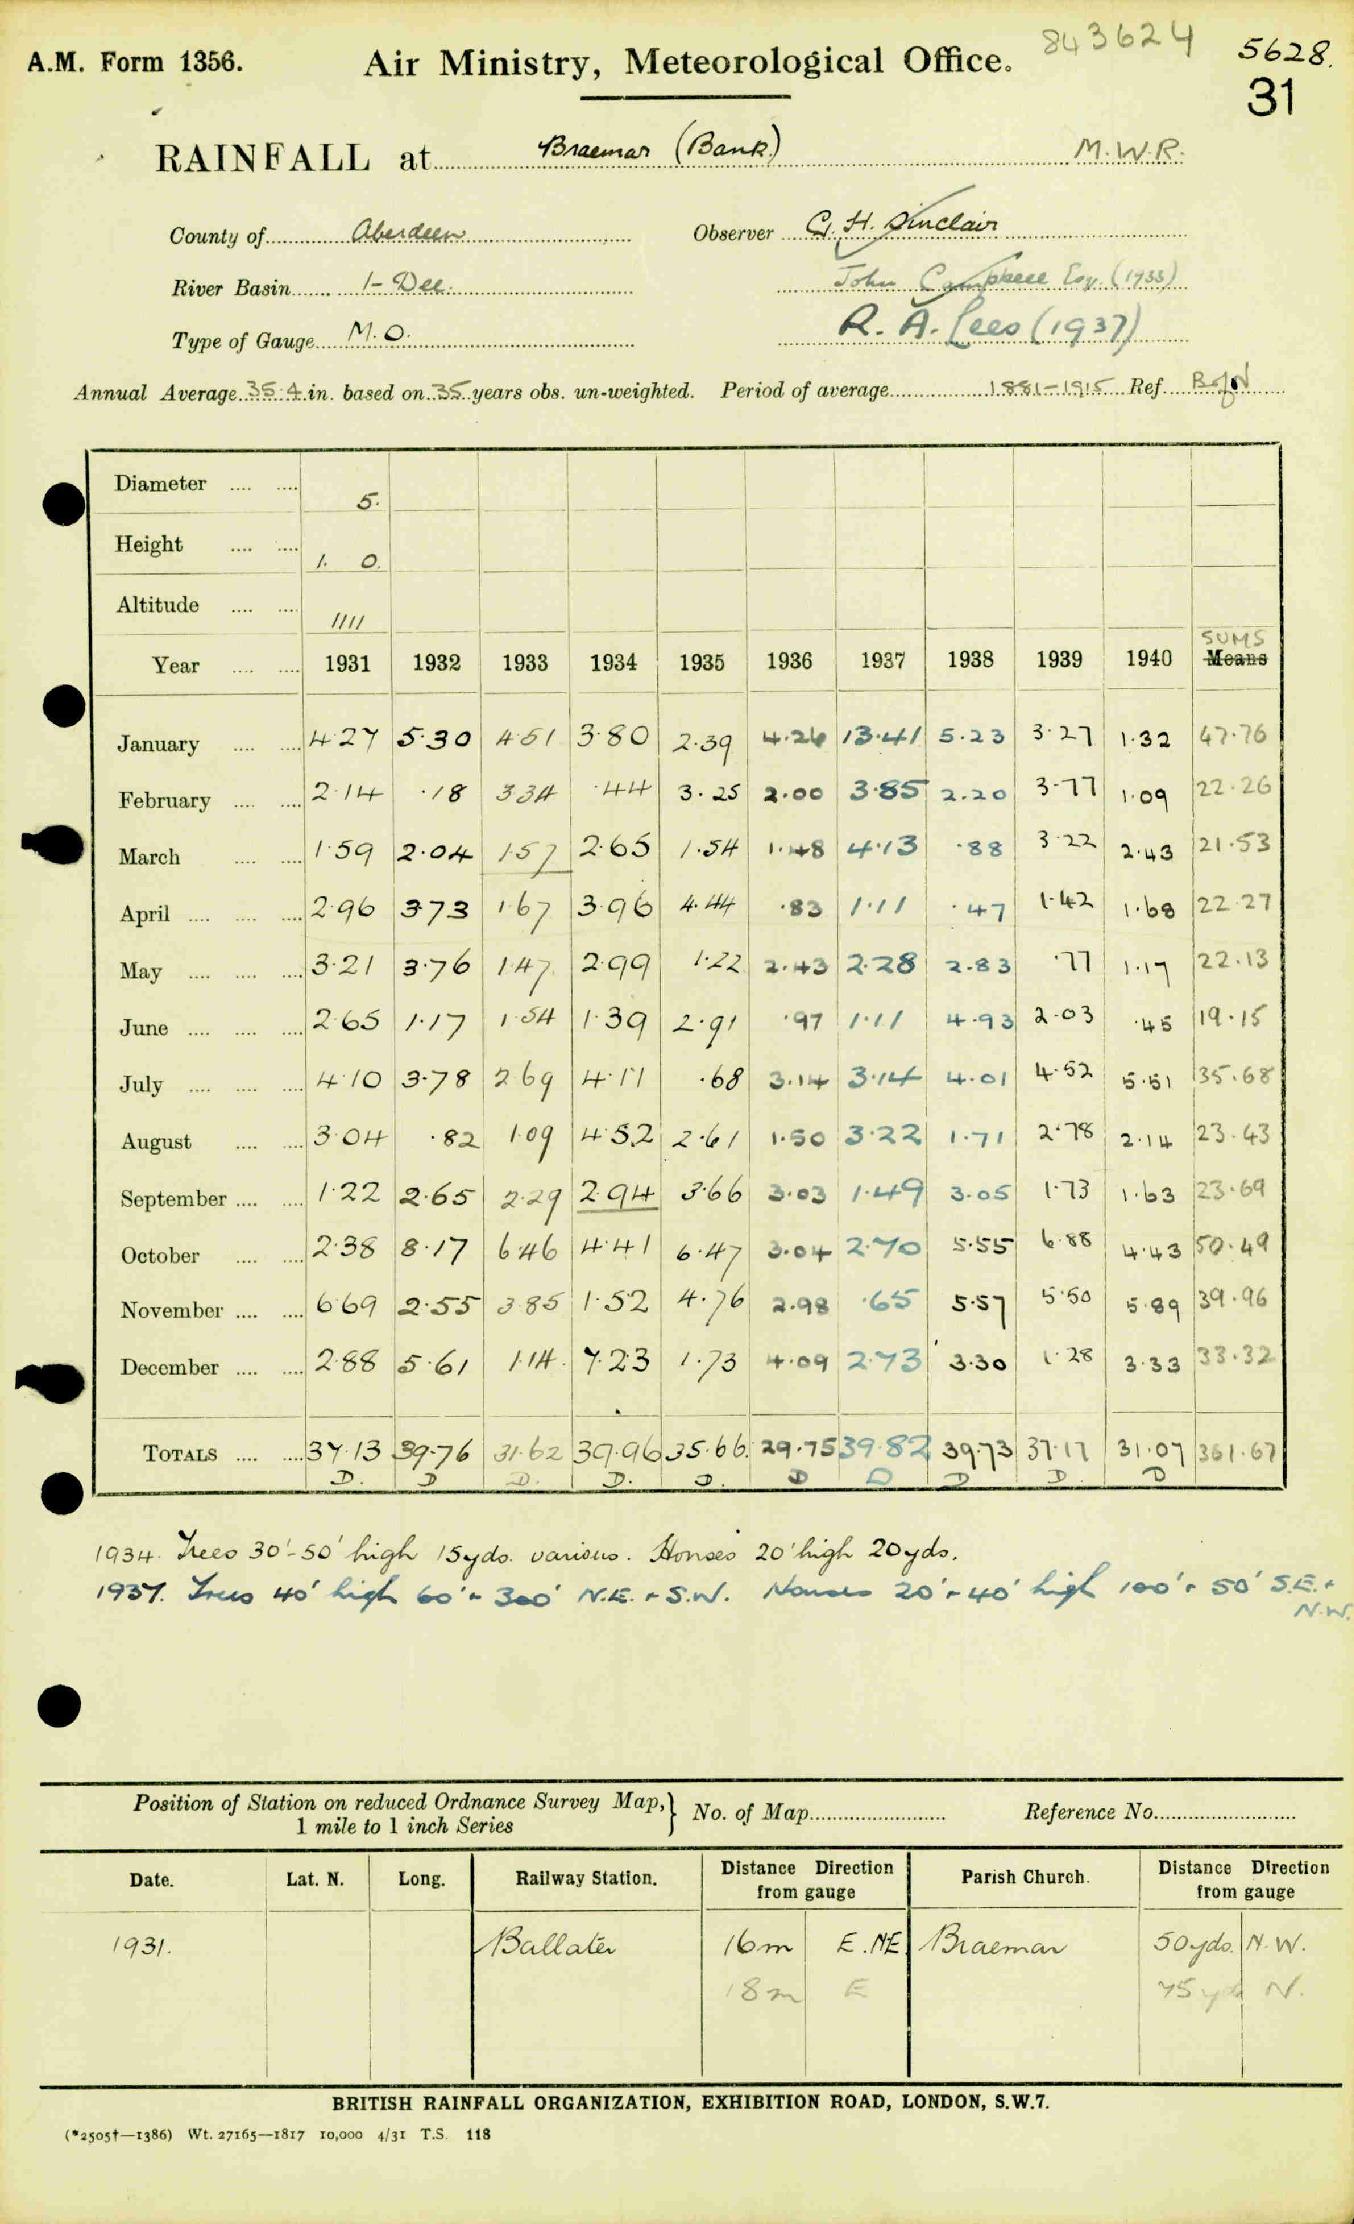 A.M. Form 1356.
Air Ministry, Meteorological Office.
843624
5628.
31
RAINFALL at Braemar (Bank) M.W.R.
County of Aberdeen Observer G. H. Sinclair
River Basin 1- Dee. John Campbell Esq. (1933)
Type of Gauge M.O. R. A. Lees (1937)
Annual Average 35.4 in. based on 35 years obs. un-weighted. Period of average 1881-1915 Ref.
Diameter .... .... 5.
Height .... .... 1. 0.
Altitude .... .... 1111
SUMS
Year .... .... 1931 1932 1933 1934 1935 1936 1937 1938 1939 1940 Means
January .... .... 4.27 5.30 4.51 3.80 2.39 4.26 13.41 5.23 3.27 1.32 47.76
February .... .... 2.14 .18 3.34 .44 3.25 2.00 3.85 2.20 3.77 1.09 22.26
March .... .... 1.59 2.04 1.57 2.65 1.54 1.48 4.13 .88 3.22 2.43 21.53
April .... .... .... 2.96 3.73 1.67 3.96 4.44 .83 1.11 .47 1.42 1.68 22.27
May .... .... .... 3.21 3.76 1.47 2.99 1.22 2.43 2.28 2.83 .77 1.17 22.13
June .... .... .... 2.65 1.17 1.54 1.39 2.91 .97 1.11 4.93 2.03 .45 19.15
July .... .... .... 4.10 3.78 2.69 4.11 .68 3.14 3.14 4.01 4.52 5.51 35.68
August .... .... 3.04 .82 1.09 4.52 2.61 1.50 3.22 1.71 2.78 2.14 23.43
September .... .... 1.22 2.65 2.29 2.94 3.66 3.03 1.49 3.05 1.73 1.63 23.69
October .... .... 2.38 8.17 6.46 4.41 6.47 3.04 2.70 5.55 6.88 4.43 50.49
November .... .... 6.69 2.55 3.85 1.52 4.76 2.98 .65 5.57 5.50 5.89 39.96
December .... .... 2.88 5.61 1.14 7.23 1.73 4.09 2.73 3.30 1.28 3.33 33.32
TOTALS .... .... 37.13 39.76 31.62 39.96 35.66. 29.75 39.82 39.73 37.17 31.07 361.67
D. D D. D. D. D D D D. D
1934. Trees 30'-50' high 15yds. various. Houses 20' high 20yds.
1937. Trees 40' high 60' - 300' N.E. + S.W. Houses 20' - 40' high 100' - 50' S.E. +
N.W.
Position of Station on reduced Ordnance Survey Map, } No. of Map Reference No.
1 mile to 1 inch Series
Date. Lat. N. Long. Railway Station. Distance Direction from gauge Parish Church. Distance Direction from gauge
1931. Ballater 16m E.NE Braemar 50yds. N.W.
18m E 75yds N.
BRITISH RAINFALL ORGANIZATION, EXHIBITION ROAD, LONDON, S.W.7.
(*2505†—1386) Wt. 27165—1817 10,000 4/31 T.S. 118